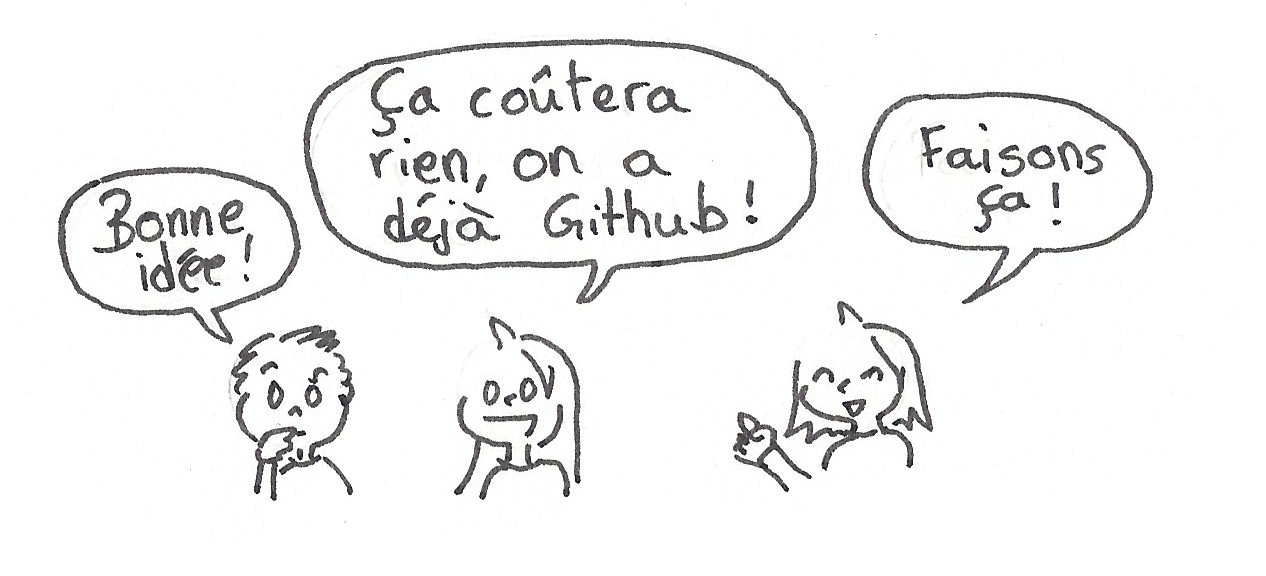 Bonne
idée !
Ça coûtera
rien, on a
déjà Github !
Faisons
ça !